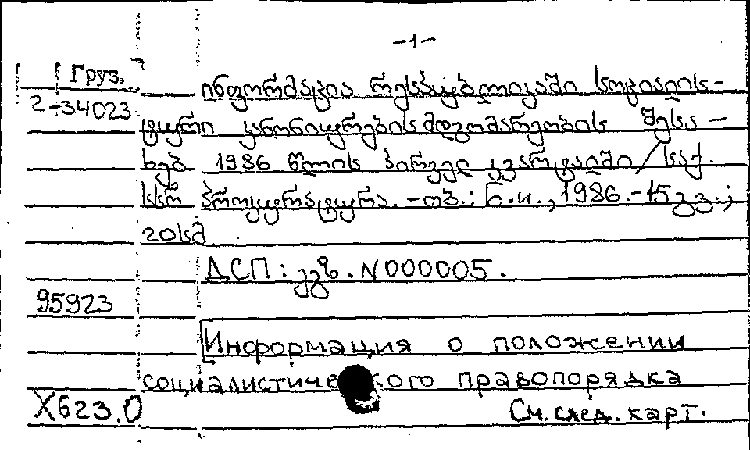 -1-
Груз.
ინფორმაცია რესპუბლიკაში სოციალის-
2-34023
ტური კანონიერების მდგომარეობის შესა-
ხებ 1986 წლის პირველ კვარტალში / საქ.
სსრ პროკურატურა. -თბ.: Б.и., 1986.-15გვ.;
20სმ
ДСП: ეგზ. N000005.
95923
[Информация о положении
социалистического правопорядка
X623.0
См. след. карт.